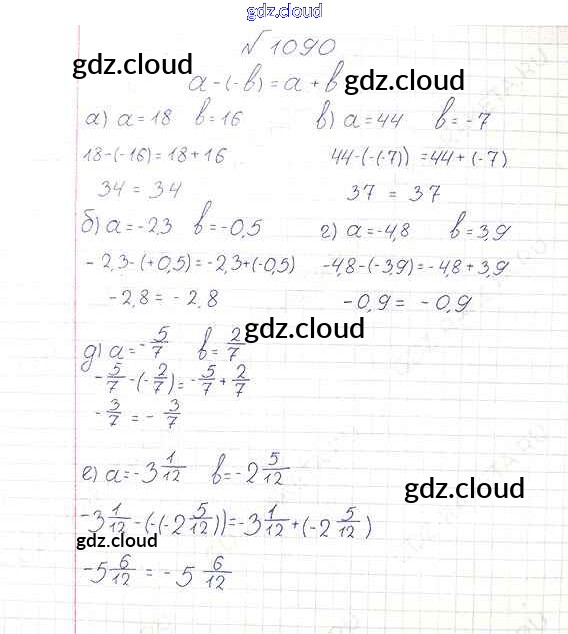 gdz.cloud
№1090
gdz.cloud
a-(-b)=a+b
gdz.cloud
а) a=18 b=16
в) a=44 b=-7
18-(-16)=18+16
44-(-(-7))=44+(-7)
34=34
37=37
б) a=-2,3 b=-0,5
г) a=-4,8 b=3,9
-2,3-(+0,5)=-2,3+(-0,5)
-4,8-(-3,9)=-4,8+3,9
-2,8=-2,8
-0,9=-0,9
gdz.cloud
д) a=-5/7 b=2/7
-5/7-(-2/7)=-5/7+2/7
-3/7=-3/7
е) a=-3 1/12 b=-2 5/12
gdz.cloud
-3 1/12-(-(-2 5/12))=-3 1/12+(-2 5/12)
gdz.cloud
-5 6/12=-5 6/12